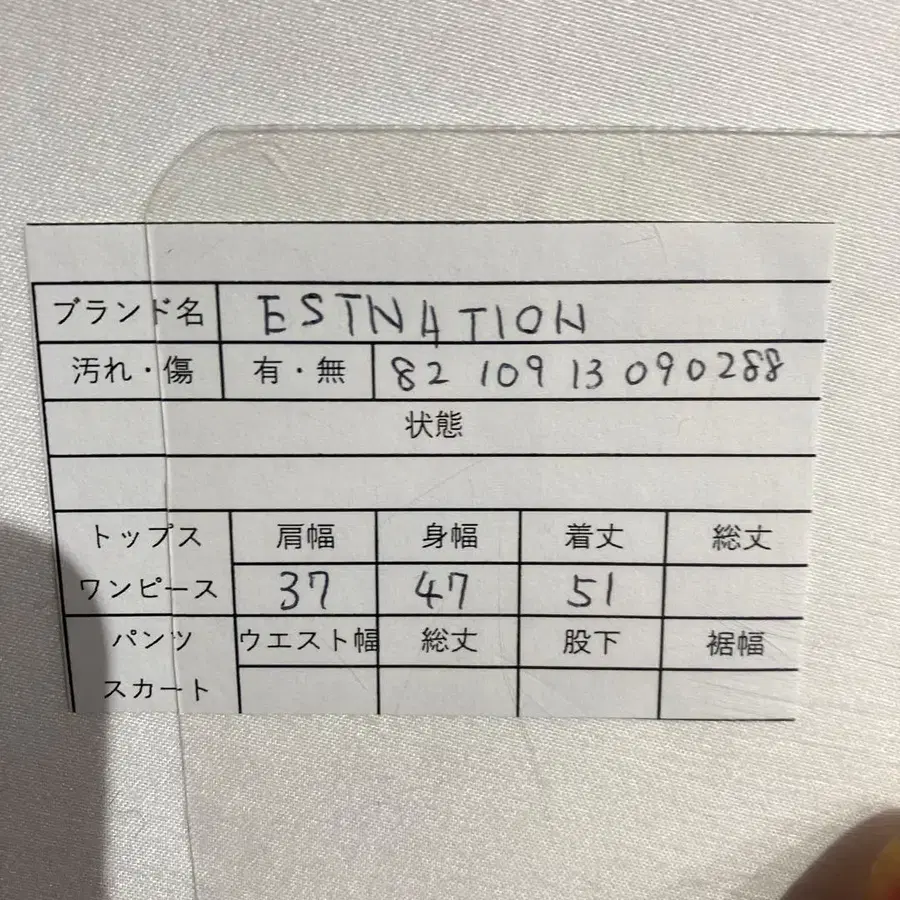 ブランド名 ESTNATION
汚れ・傷 有・無 82 109 13 090288
状態
トップス 肩幅 身幅 着丈 総丈
ワンピース 37 47 51
パンツ ウエスト幅 総丈 股下 裾幅
スカート